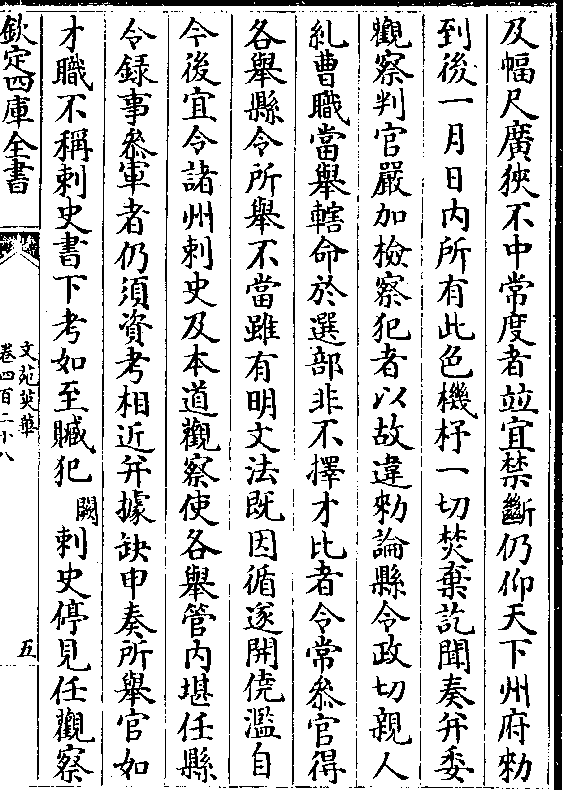 及幅尺廣狹不中常度者並宜禁斷仍仰天下州府勅
到後一月日内所有此色機杼一切焚棄訖聞奏并委
觀察判官嚴加檢察犯者以故違勅論縣令政切親人
糺曹職當舉轄命於選部非不擇才比者令常叅官得
各舉縣令所舉不當雖有明文法既因循遂開僥濫自
今後宜令諸州刺史及本道觀察使各舉管内堪任縣
令録事叅軍者仍須資考相近并據缺申奏所舉官如
才職不稱刺史書下考如至贓犯闕刺史停見任觀察
欽定四庫全書
文苑英華
卷四百二十八
五